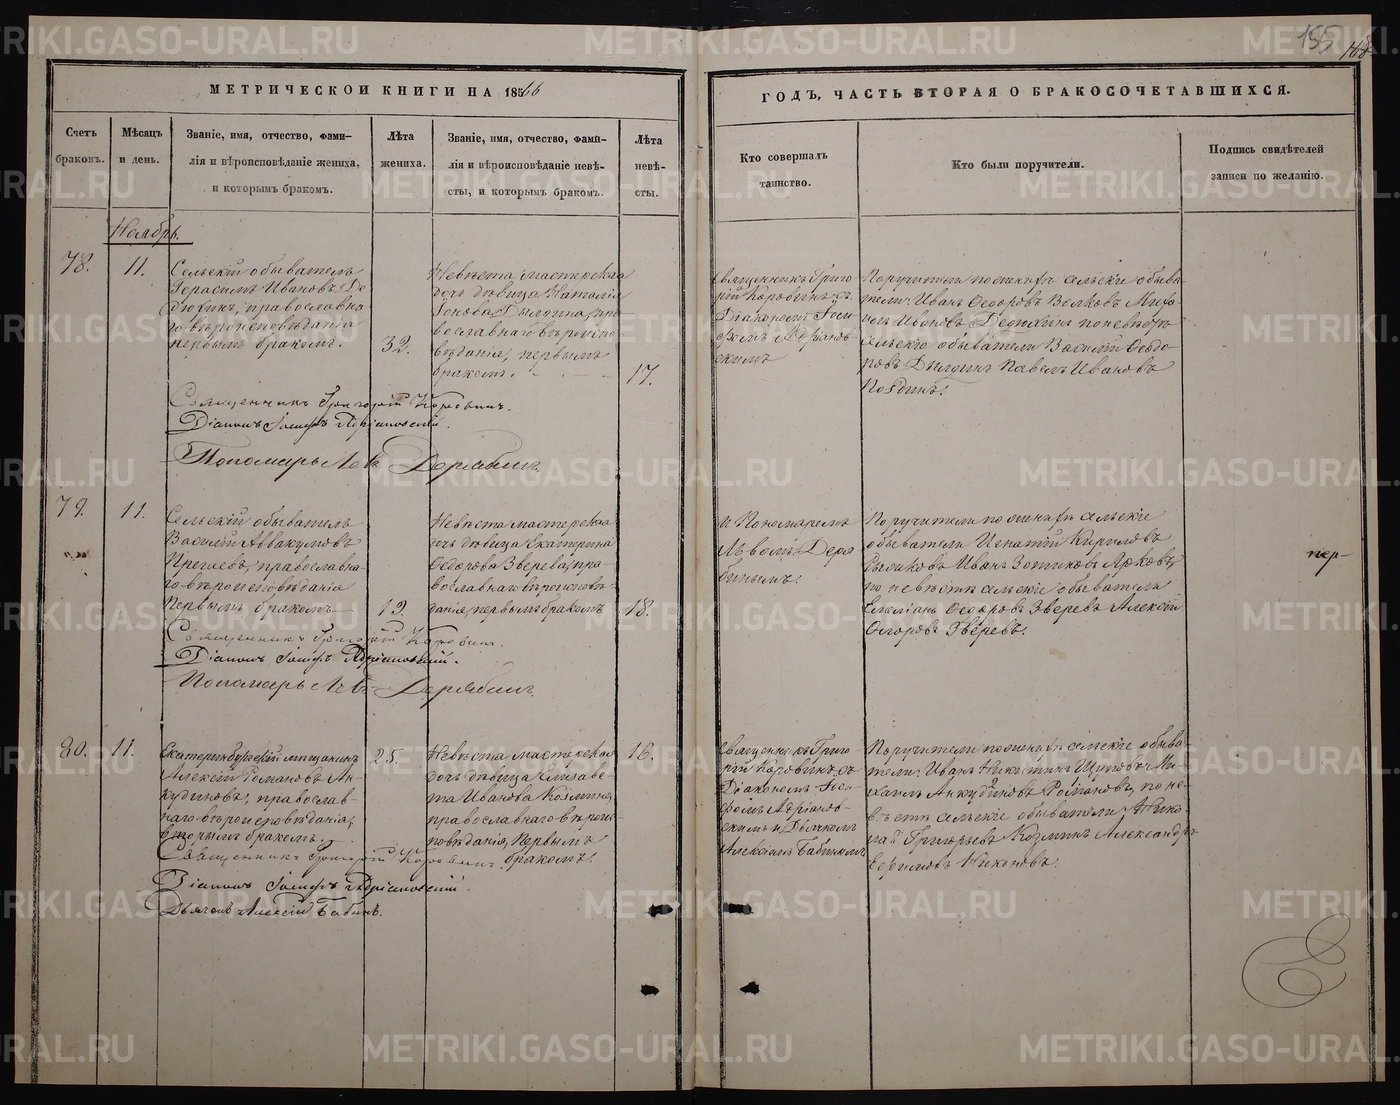 155
МЕТРИЧЕСКОЙ КНИГИ НА 1866
ГОДЪ, ЧАСТЬ ВТОРАЯ О БРАКОСОЧЕТАВШИХСЯ.
Счетъ браковъ.
Мѣсяцъ и день.
Званіе, имя, отчество, фами-
лія и вѣроисповѣданіе жениха,
и которымъ бракомъ.
Лѣта
жениха.
Званіе, имя, отчество, фами-
лія и вѣроисповѣданіе невѣ-
сты, и которымъ бракомъ.
Лѣта
невѣ-
сты.
Кто совершалъ
таинство.
Кто были поручители.
Подпись свидѣтелей
записи по желанію.
Ноябрь.
78.
11.
Сельскій обыватель
Герасимъ Ивановъ Де
дюхинъ, православна
го вѣроисповѣданія
первымъ бракомъ.
32.
Невѣста мастерская
дочь дѣвица Наталія
Дылдина, пра
вославнаго вѣроиспо
вѣданія, первымъ
бракомъ.
17.
Священникъ Григо
рій Коровинъ съ
Діакономъ Іоси
фомъ Адріанов
скимъ
Поручители по женихѣ сельскіе обыва
тели: Иванъ Ѳедоровъ Волковъ
Ивановъ Дедюхинъ по невѣстѣ
сельскіе обыватели Василій Ѳеодо
ровъ Дылдинъ Павелъ Ивановъ
Поздинъ.
Священникъ Григорій Коровинъ.
Діаконъ Іосифъ Адріановскій.
Пономарь Левъ Дерябинъ.
79.
11.
Сельскій обыватель
Василій Аввакумовъ
православна
го вѣроисповѣданія
Первымъ бракомъ
19.
Невѣста мастерская
дочь дѣвица Екатерина
Ѳедорова Зверева, пра-
вославнаго вѣроисповѣ
данія, первымъ бракомъ
18.
и Пономаремъ
Львомъ Деря
бинымъ.
Поручители по женихѣ сельскіе
обыватели Игнатій Кириловъ
Иванъ Зотиковъ
по невѣстѣ сельскіе обыватели
Емеліянъ Ѳедоровъ Зверевъ Алексѣй
Егоровъ Зверевъ.
пер-
Священникъ Григорій Коровинъ.
Діаконъ Іосифъ Адріановскій.
Пономарь Левъ Дерябинъ
80.
11.
Екатеринбургскій мѣщанинъ
Алексѣй Романовъ Ан
кудиновъ, православ-
наго вѣроисповѣданія,
вторымъ бракомъ.
25.
Невѣста мастерская
дочь дѣвица Елизаве-
та Иванова Козмина,
православнаго вѣроис
повѣданія, Первымъ
бракомъ.
16.
Священникъ Григо
рій Коровинъ съ
Діакономъ Іоси
фомъ Адріанов-
скимъ и Дьячкомъ
Алексѣемъ Бабинымъ
Поручители по женихѣ сельскіе обыва
тели: Иванъ Никитинъ Щуповъ Ми-
хаилъ Анкудиновъ Романовъ, по не-
вѣстѣ сельскіе обыватели Нико
лай Григорьевъ Козминъ Александръ
Ефимовъ Никоновъ.
Священникъ Григорій Коровинъ.
Діаконъ Іосифъ Адріановскій.
Дьячекъ Алексѣй Бабинъ.
METRIKI.GASO-URAL.RU